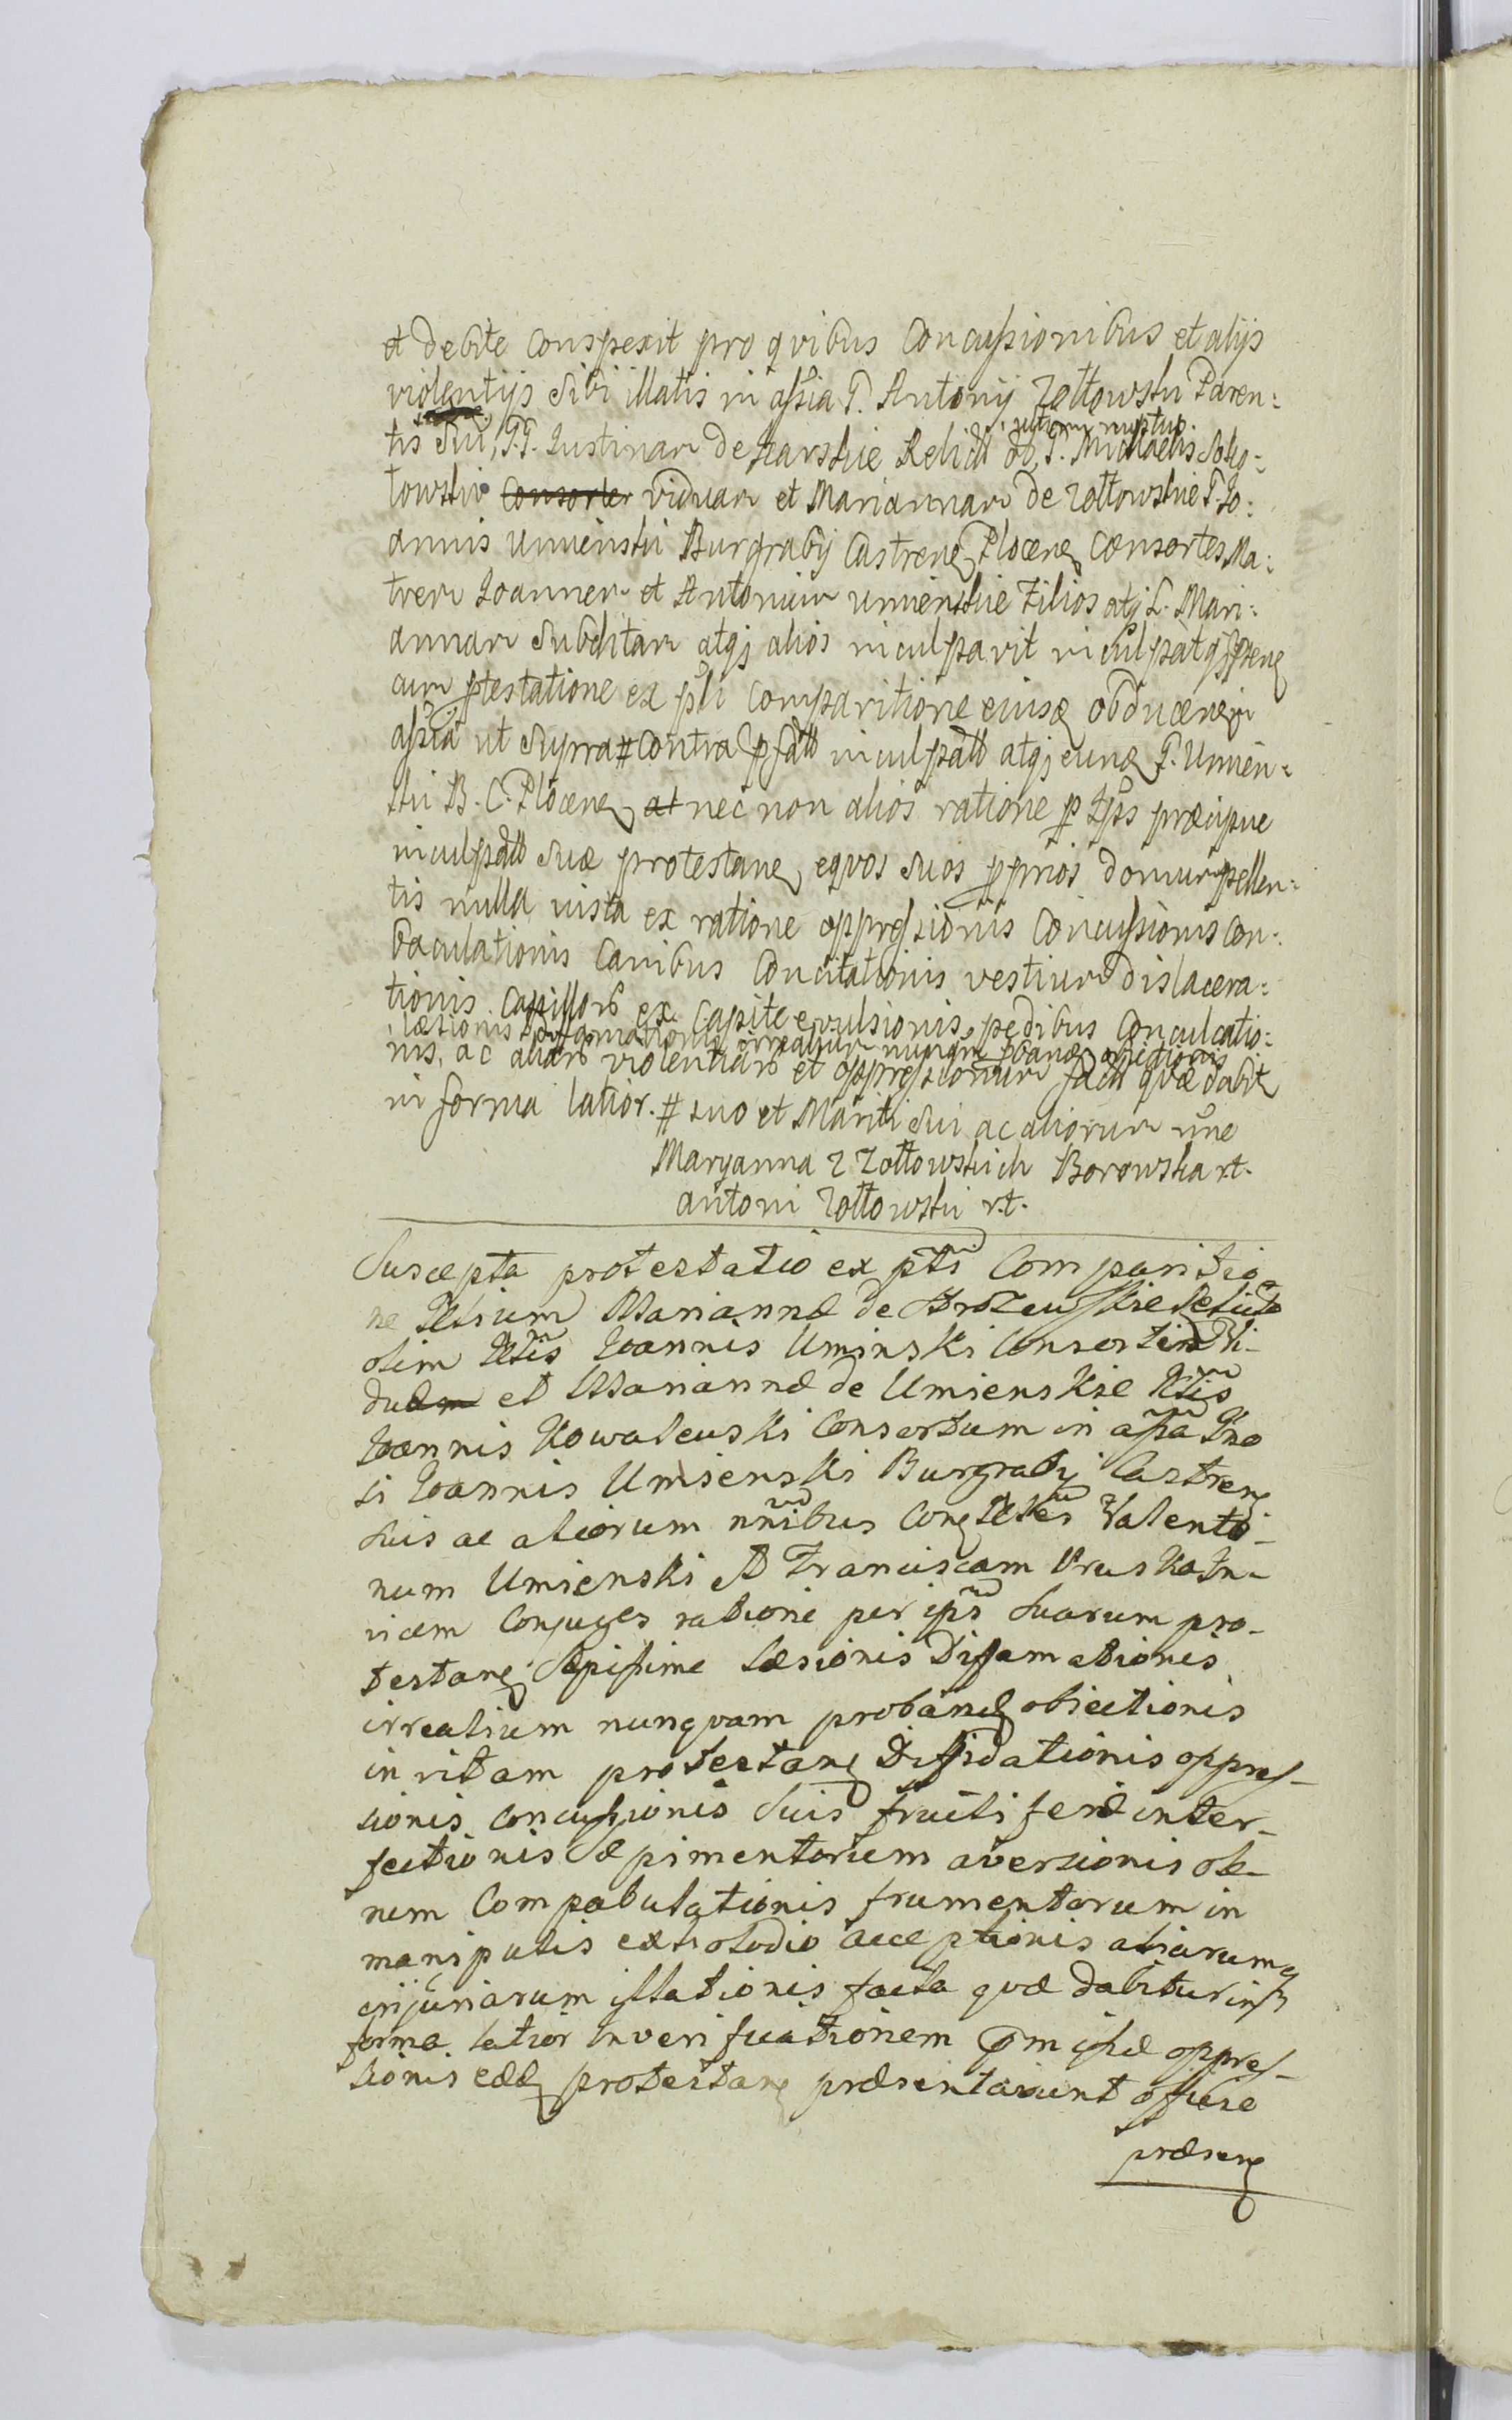 et debite Conspexit pro qvibus Concussionibus et alijs
violentijs sibi illatis in assia G. Antonij Zołtowski Paren:
tis sui, G.G. Iustinam de Relict ol. G. Michaelis Soko:
ultimi nuptus.
łowski Consorte viduam et Mariannam de Zołtowskie G. Jo:
annis Umienski Burgrabij Castren Plocen Consortes Ma:
trem Ioannem et Antonium Umienskie Filios atq L. Mari:
annam Subditam atqj alios inculpavit inculpatqj psen
cum ptestatione ex psti Comparitione eiusd obducen in
assia ut supra # Contra psatt inculpatt atqj eund G. Umien:
ski B. C. Plocen at nec non alios ratione p Ipsos præcipue
inculpatt suæ protestane eqvos suos pprios domum pellen:
tis nulla iusta ex ratione oppressionis Concussionis Con:
baculationis Canibus Concitationis vestium dislacera:
tionis Capillor ex Capite evulsionis pedibus Conculcatio:
læsionis difamationis irrealium nunqm pband obiectionis
nis, ac aliar violentiar et oppressionum factt qvæ dabit
in forma latior. # suo et Mariti sui ac aliorum nne
Maryanna z Zołtowskich Borowska r.t.
antoni Zołtowski r.t.
Suscepta protestatio ex psti Comparitio
ne Gldium Mariannæ de Relicte
olim Gldis Ioannis Uminski Consortis Vi-
duæm et Mariannæ de Umienskie Gldis
Ioannis Kowalewski Consortum in assia Gne
si Ioannis Umienski Burgrabij Castren
suis ac aliorum nnibus Con Gldes Valenti-
num Umienski et Franciscam In-
vicem Conjuges ratione per ipsos suarum pro-
testane sæpissime læsionis Difamationis
irrealium nunqvam proband obiectionis
in vitam protestane Diffidationis oppres-
sionis concussionis suis fructiferæ inter-
fectionis sæpimentorum aversionis ole-
rum Compabulationis frumentorum in
manipulis ex stodio acceptionis aliarumq
injuriarum illationis facta qvæ dabitur in
forma latior In verificationem pmissæ oppres-
sionis eæd protestane præsentarunt officio
præsen